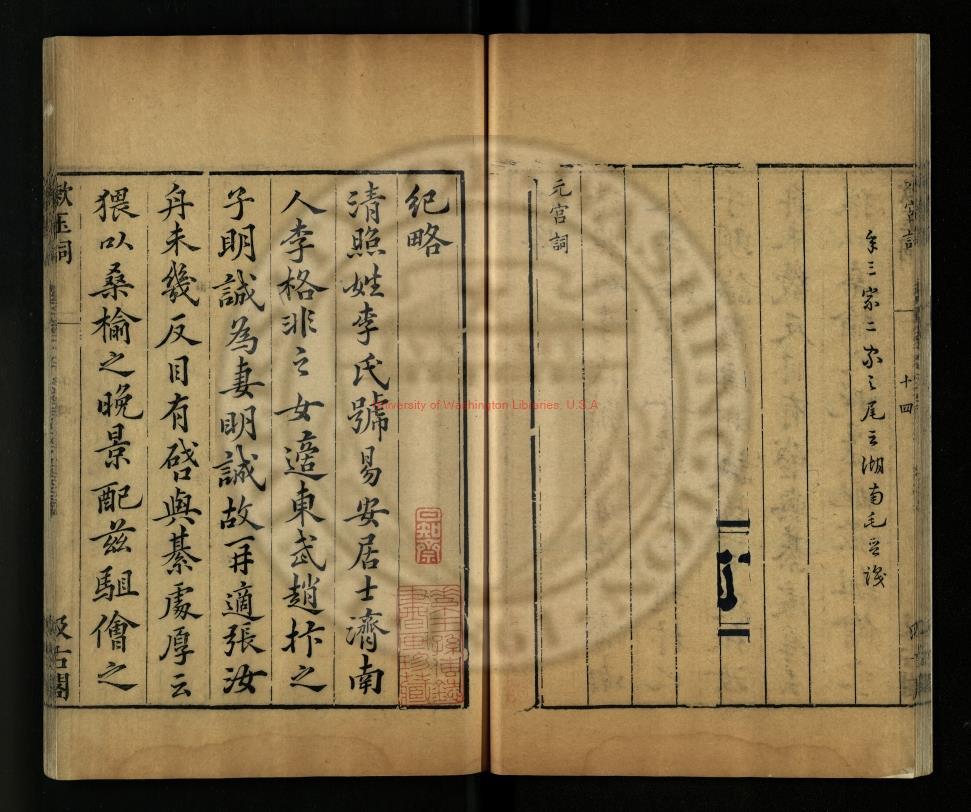 十四
合三家二家之尾云湖南毛晉識
元宮詞
紀略
清照姓李氏號易安居士濟南
人李格非之女適東武趙抃之
子明誠為妻明誠故再適張汝
舟未幾反目有啓與綦處厚云
猥以桑榆之晚景配茲駔儈之
漱玉詞
一
汲古閣
University of Washington Libraries, U.S.A